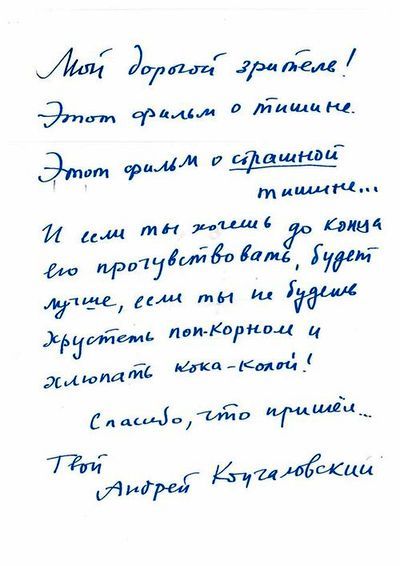 Мой дорогой зритель!
Этот фильм о тишине.
Этот фильм о страшной
тишине...
И если ты хочешь до конца
его прочувствовать, будет
лучше, если ты не будешь
хрустеть поп-корном и
хлюпать кока-колой!
Спасибо, что пришёл...
Твой
Андрей Кончаловский